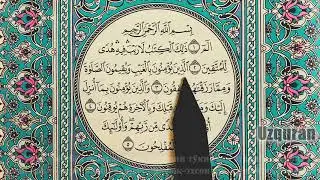 بِسْمِ اللَّهِ الرَّحْمَٰنِ الرَّحِيمِ
الم ۝ ذَٰلِكَ الْكِتَابُ لَا رَيْبَ فِيهِ هُدًى
لِلْمُتَّقِينَ ۝ الَّذِينَ يُؤْمِنُونَ بِالْغَيْبِ وَيُقِيمُونَ الصَّلَاةَ
وَمِمَّا رَزَقْنَاهُمْ يُنْفِقُونَ ۝ وَالَّذِينَ يُؤْمِنُونَ بِمَا أُنْزِلَ
إِلَيْكَ وَمَا قَبْلِكَ وَبِالْآخِرَةِ هُمْ يُوقِنُونَ ۝
هُدًى مِنْ رَبِّهِمْ وَأُولَٰئِكَ
الْمُفْلِحُونَ ۝
Uzquran